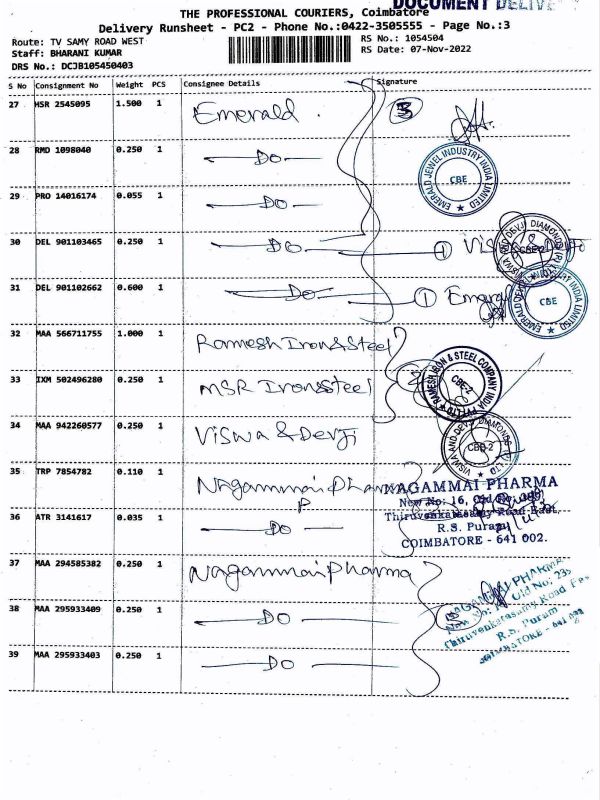 DOCUMENT DELIVE
THE PROFESSIONAL COURIERS, Coimbatore
Delivery Runsheet - PC2 - Phone No.:0422-3505555 - Page No.:3
Route: TV SAMY ROAD WEST
Staff: BHARANI KUMAR
DRS No.: DCJB105450403
RS No.: 1054504
RS Date: 07-Nov-2022
S No Consignment No Weight PCS Consignee Details Signature
27 HSR 2545095 1.500 1 Emerald
28 RMD 1098040 0.250 1 DO
EMERALD JEWEL INDUSTRY INDIA LIMITED CBE
29 PRO 14016174 0.055 1 DO
30 DEL 901103465 0.250 1 DO 1
VISWA AND DEVJI DIAMONDS (P) LTD CBE-2
31 DEL 901102662 0.600 1 DO 1
EMERALD JEWEL INDUSTRY INDIA LIMITED CBE
32 MAA 566711755 1.000 1 Ramesh Iron & Steel
RAMESH IRON & STEEL COMPANY INDIA PVT LTD CBE-2
33 IXM 502496280 0.250 1 MSR Iron & Steel
34 MAA 942260577 0.250 1 Viswa & Devji
VISWA AND DEVJI DIAMONDS (P) LTD CBE-2
35 TRP 7854782 0.110 1 Nagammai Pharma
NAGAMMAI PHARMA
New No: 16, Old No:
Thiruvenkatasamy Road East,
R.S. Puram
COIMBATORE - 641 002.
36 ATR 3141617 0.035 1 DO
37 MAA 294585382 0.250 1 Nagammai Pharma
38 MAA 295933409 0.250 1 DO
NAGAMMAI PHARMA
New No: Old No: 235
Thiruvenkatasamy Road
R.S. Puram
COIMBATORE - 641 002
39 MAA 295933403 0.250 1 DO